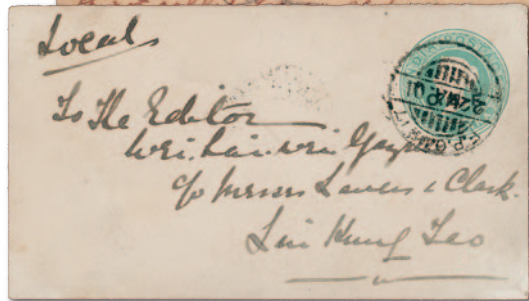 Local
To The Editor
Wei-hai-wei Gazette
c/o Messrs Lavers & Clark.
Liu Kung Tao
F.P.O. No. 17
22 MAR 01